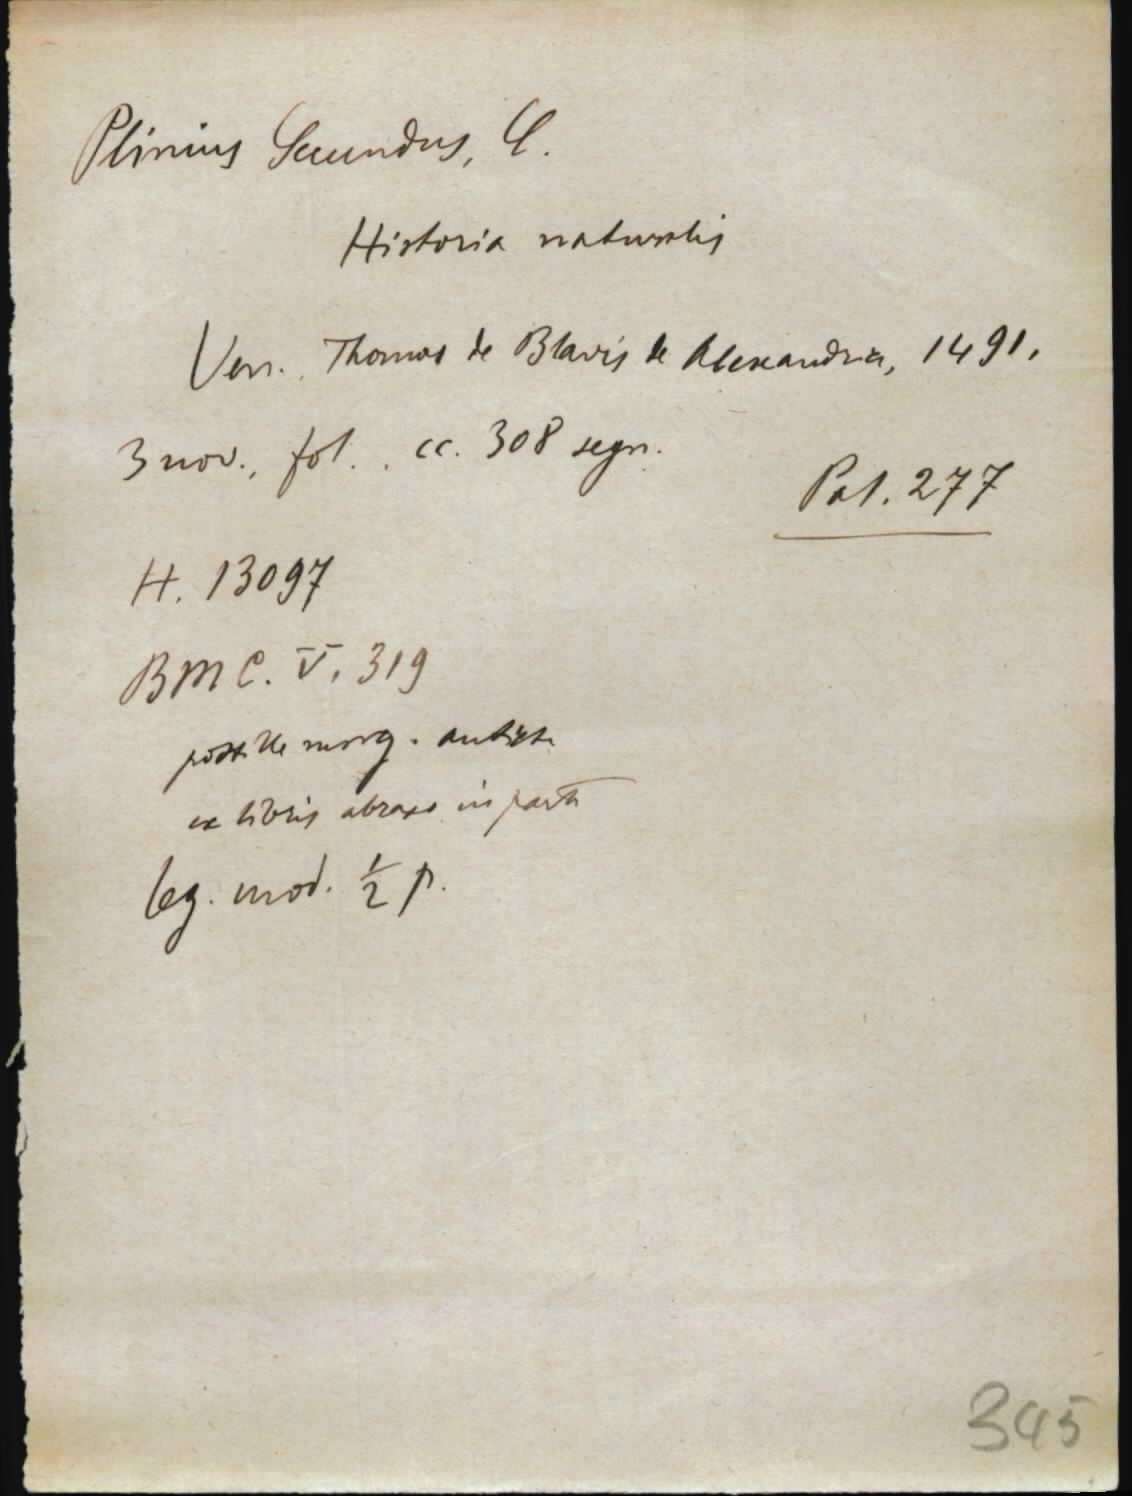 Plinius Secundus, C.
Historia naturalis
Ven. Thomas de Blavis de Alexandria, 1491,
3 nov., fol. . cc. 308 segn.
Pal. 277
H. 13097
BMC. V, 319
postille marg. antiche
ex libris abraso in parte
leg. mod. ½ p.
345